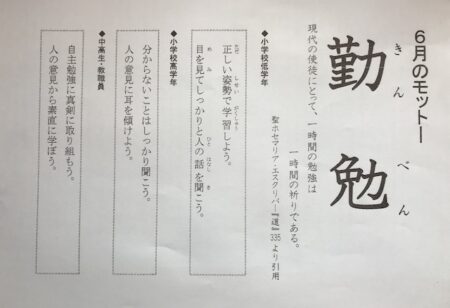 6月のモットー
きんべん
勤勉
現代の使徒にとって、一時間の勉強は
一時間の祈りである。
聖ホセマリア・エスクリバー『道』335より引用
◆小学校低学年
ただ しせい がくしゅう
正しい姿勢で学習しよう。
め み ひと はなし き
目を見てしっかりと人の話を聞こう。
◆小学校高学年
分からないことはしっかり聞こう。
人の意見に耳を傾けよう。
◆中高生・教職員
自主勉強に真剣に取り組もう。
人の意見から素直に学ぼう。